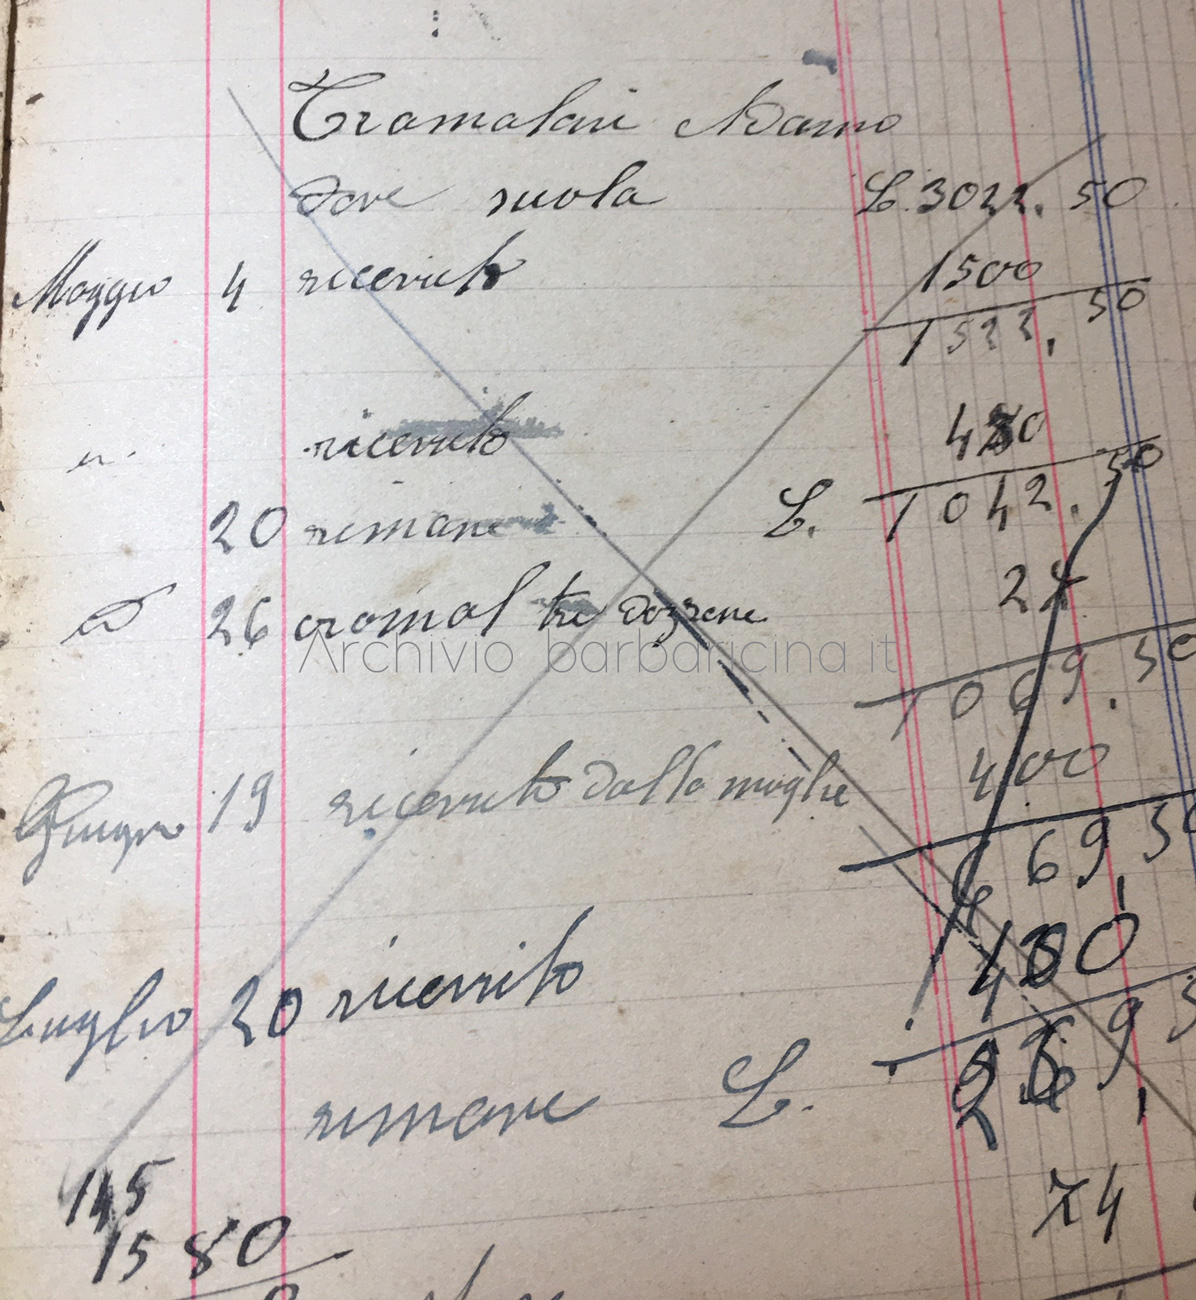 Tramalani Adamo
dave suola L. 3022. 50
Maggio 4 ricevuto 1500
1522, 50
" ricevuto 480
20 rimane L. 1042. 50
26 cromal tre dozzene 27
1069. 50
Giugno 19 ricevuto dalla moglie 400
669, 50
Luglio 20 ricevuto 400
rimane L. 269, 5
74
145
15 80
Archivio barbaricina.it